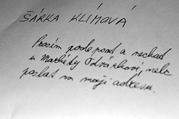 ŠÁRKA KLÍMOVÁ
Prosím podepsat a nechat
u Markéty Dvořákové nebo
poslat na moji adresu.